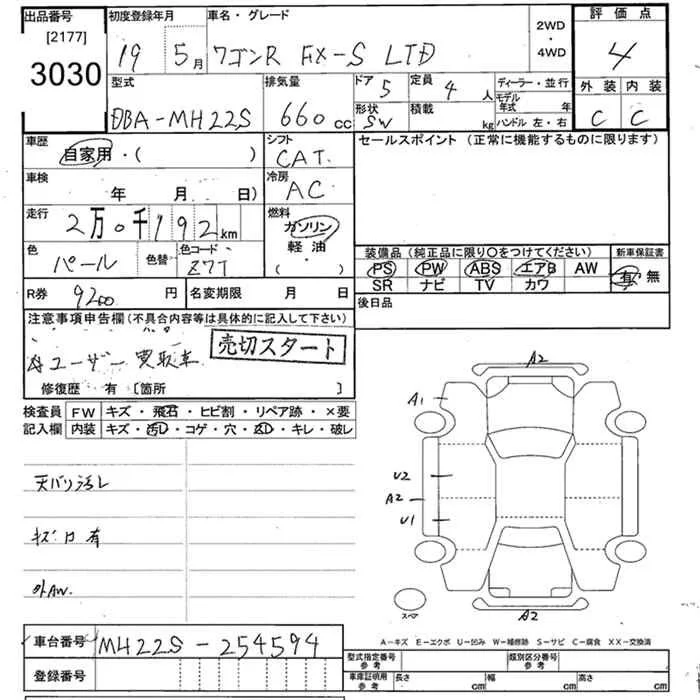 出品番号 初度登録年月 車名・グレード 2WD・4WD 評価点
[2177]
3030 19 5月 ワゴンR FX-S LTD 4
型式 排気量 ドア 5 定員 4人 ディーラー・並行 外装 内装
DBA-MH22S 660cc 形状 SW 積載 kg モデル年式 年 ハンドル 左・右 C C
車歴 自家用・( ) シフト CAT セールスポイント (正常に機能するものに限ります)
車検 年 月 日) 冷房 AC
走行 2万0千192km 燃料 ガソリン
軽油
( )
色 パール 色替 色コード Z7T
装備品(純正品に限り○をつけてください) 新車保証書
PS PW ABS エアB AW 有・無
SR ナビ TV カワ
R券 9200円 名変期限 月 日 後日品
注意事項申告欄(不具合内容等は具体的に記入して下さい)
ユーザー買取車 売切スタート
修復歴 有 [箇所 ]
検査員 FW キズ・飛石・ヒビ割・リペア跡・×要
記入欄 内装 キズ・汚レ・コゲ・穴・凹・キレ・破レ
天バリ汚レ
キズ凹有
外AW
A2
A1
U2
A2
U1
スペア
A2
A-キズ E-エクボ U-凹み W-補修跡 S-サビ C-腐食 XX-交換済
車台番号 MH22S-254594
登録番号
型式指定番号 参考 類別区分番号 参考
車庫証明用 参考 長さ cm 幅 cm 高さ cm